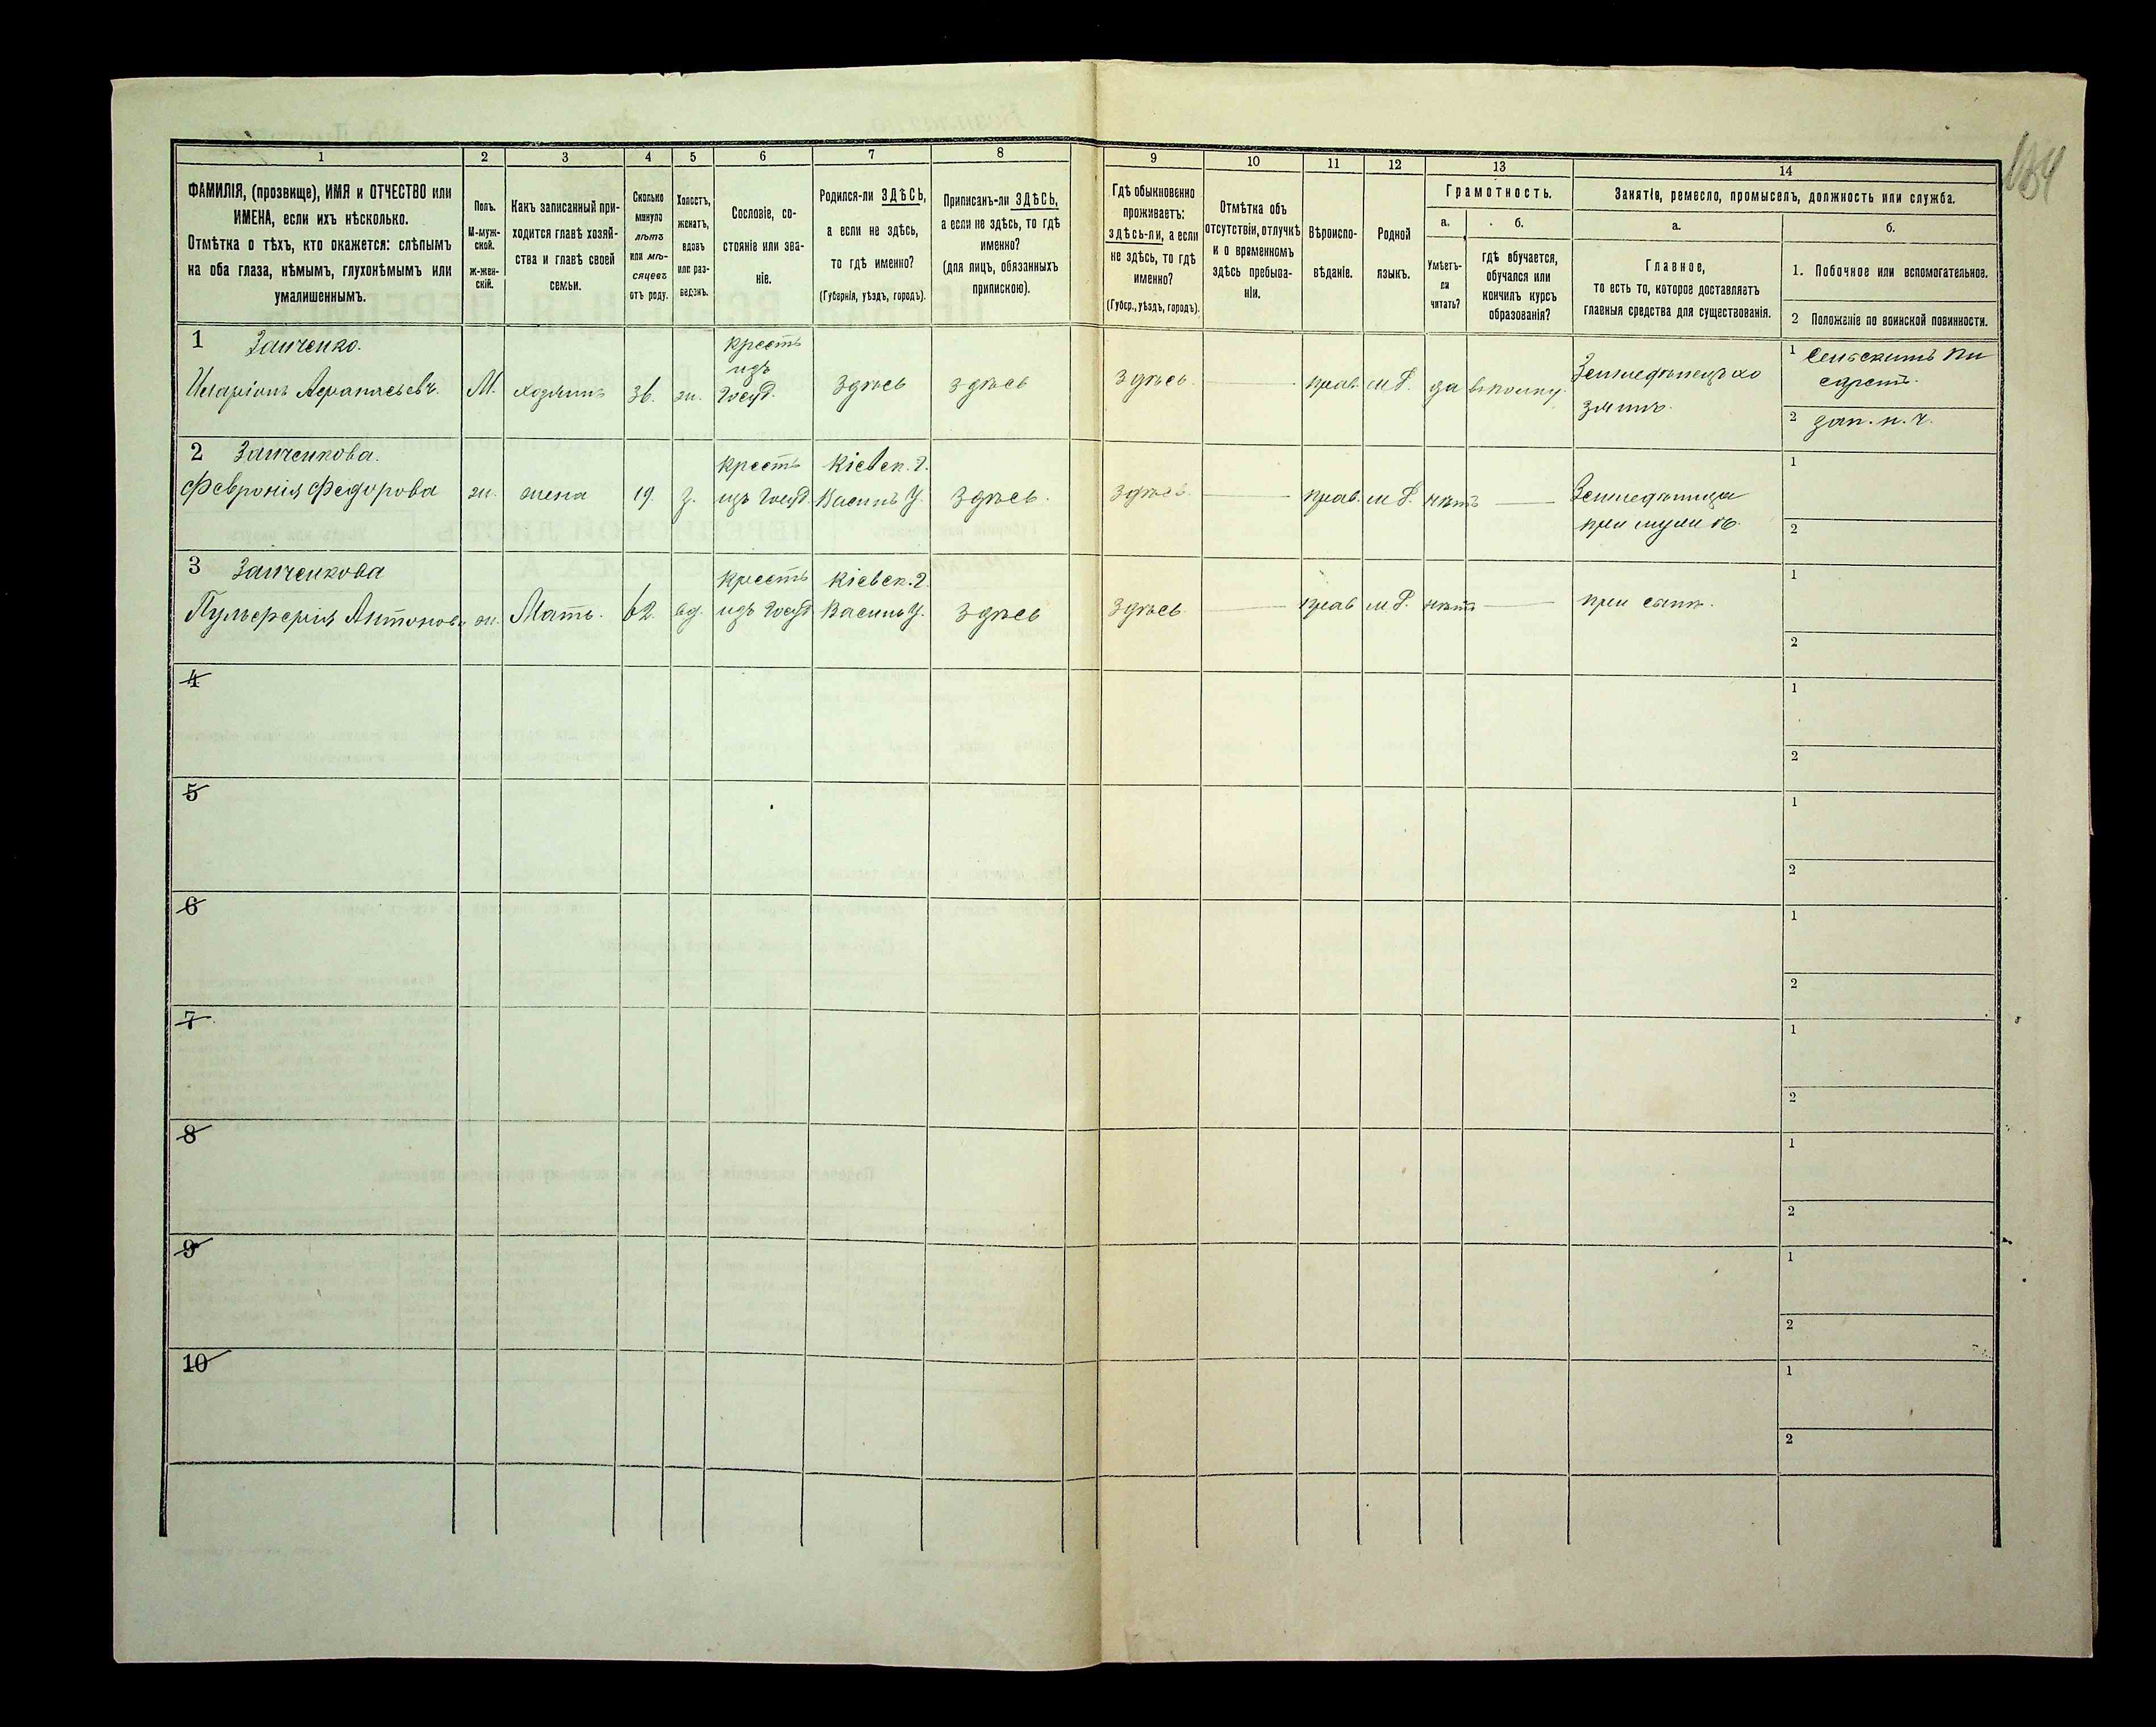 134
1
2
3
4
5
6
7
8
9
10
11
12
13
14
ФАМИЛІЯ, (прозвище), ИМЯ и ОТЧЕСТВО или
ИМЕНА, если ихъ нѣсколько.
Отмѣтка о тѣхъ, кто окажется: слѣпымъ
на оба глаза, нѣмымъ, глухонѣмымъ или
умалишеннымъ.
Полъ.
М-муж-
ской.
Ж-жен-
скій.
Какъ записанный при-
ходится главѣ хозяй-
ства и главѣ своей
семьи.
Сколько
минуло
лѣтъ
или мѣ-
сяцевъ
отъ роду.
Холостъ,
женатъ,
вдовъ
или раз-
веденъ.
Сословіе, со-
стояніе или зва-
ніе.
Родился-ли ЗДѢСЬ,
а если не здѣсь,
то гдѣ именно?
(Губернія, уѣздъ, городъ).
Приписанъ-ли ЗДѢСЬ,
а если не здѣсь, то гдѣ
именно?
(для лицъ, обязанныхъ
припискою).
Гдѣ обыкновенно
проживаетъ:
здѣсь-ли, а если
не здѣсь, то гдѣ
именно?
(Губер., уѣздъ, городъ).
Отмѣтка объ
отсутствіи, отлучкѣ
и о временномъ
здѣсь пребыва-
ніи.
Вѣроиспо-
вѣданіе.
Родной
языкъ.
Грамотность.
а.
Умѣетъ-
ли
читать?
б.
гдѣ обучается,
обучался или
кончилъ курсъ
образованія?
Занятіе, ремесло, промыселъ, должность или служба.
а.
Главное,
то есть то, которое доставляетъ
главныя средства для существованія.
б.
1. Побочное или вспомогательное.
2 Положеніе по воинской повинности.
1 Заиченко.
Иларіонъ Аѳанасьевъ.
М.
хозяинъ
36.
ж.
крестъ
изъ
Госуд.
здѣсь
здѣсь
здѣсь
прав.
М Р.
да
въ полку.
Земледѣлецъ хо
зяинъ.
1 Сельскимъ пи
саремъ.
2 зап. н. ч.
2 Заиченкова.
Февронія Федорова
ж.
жена
19
з.
крестъ
изъ Госуд.
Кіевск. г.
Василь У.
здѣсь.
здѣсь.
прав.
М Р.
нѣтъ
Земледѣлица
при мужѣ
1
2
3 Заиченкова
Пульферія Антонов.
ж.
Мать.
62.
вд.
крестъ
изъ Госуд
Кіевск. г.
Василь У.
здѣсь
здѣсь
прав
М Р.
нѣтъ
при сынѣ.
1
2
4
1
2
5
1
2
6
1
2
7
1
2
8
1
2
9
1
2
10
1
2